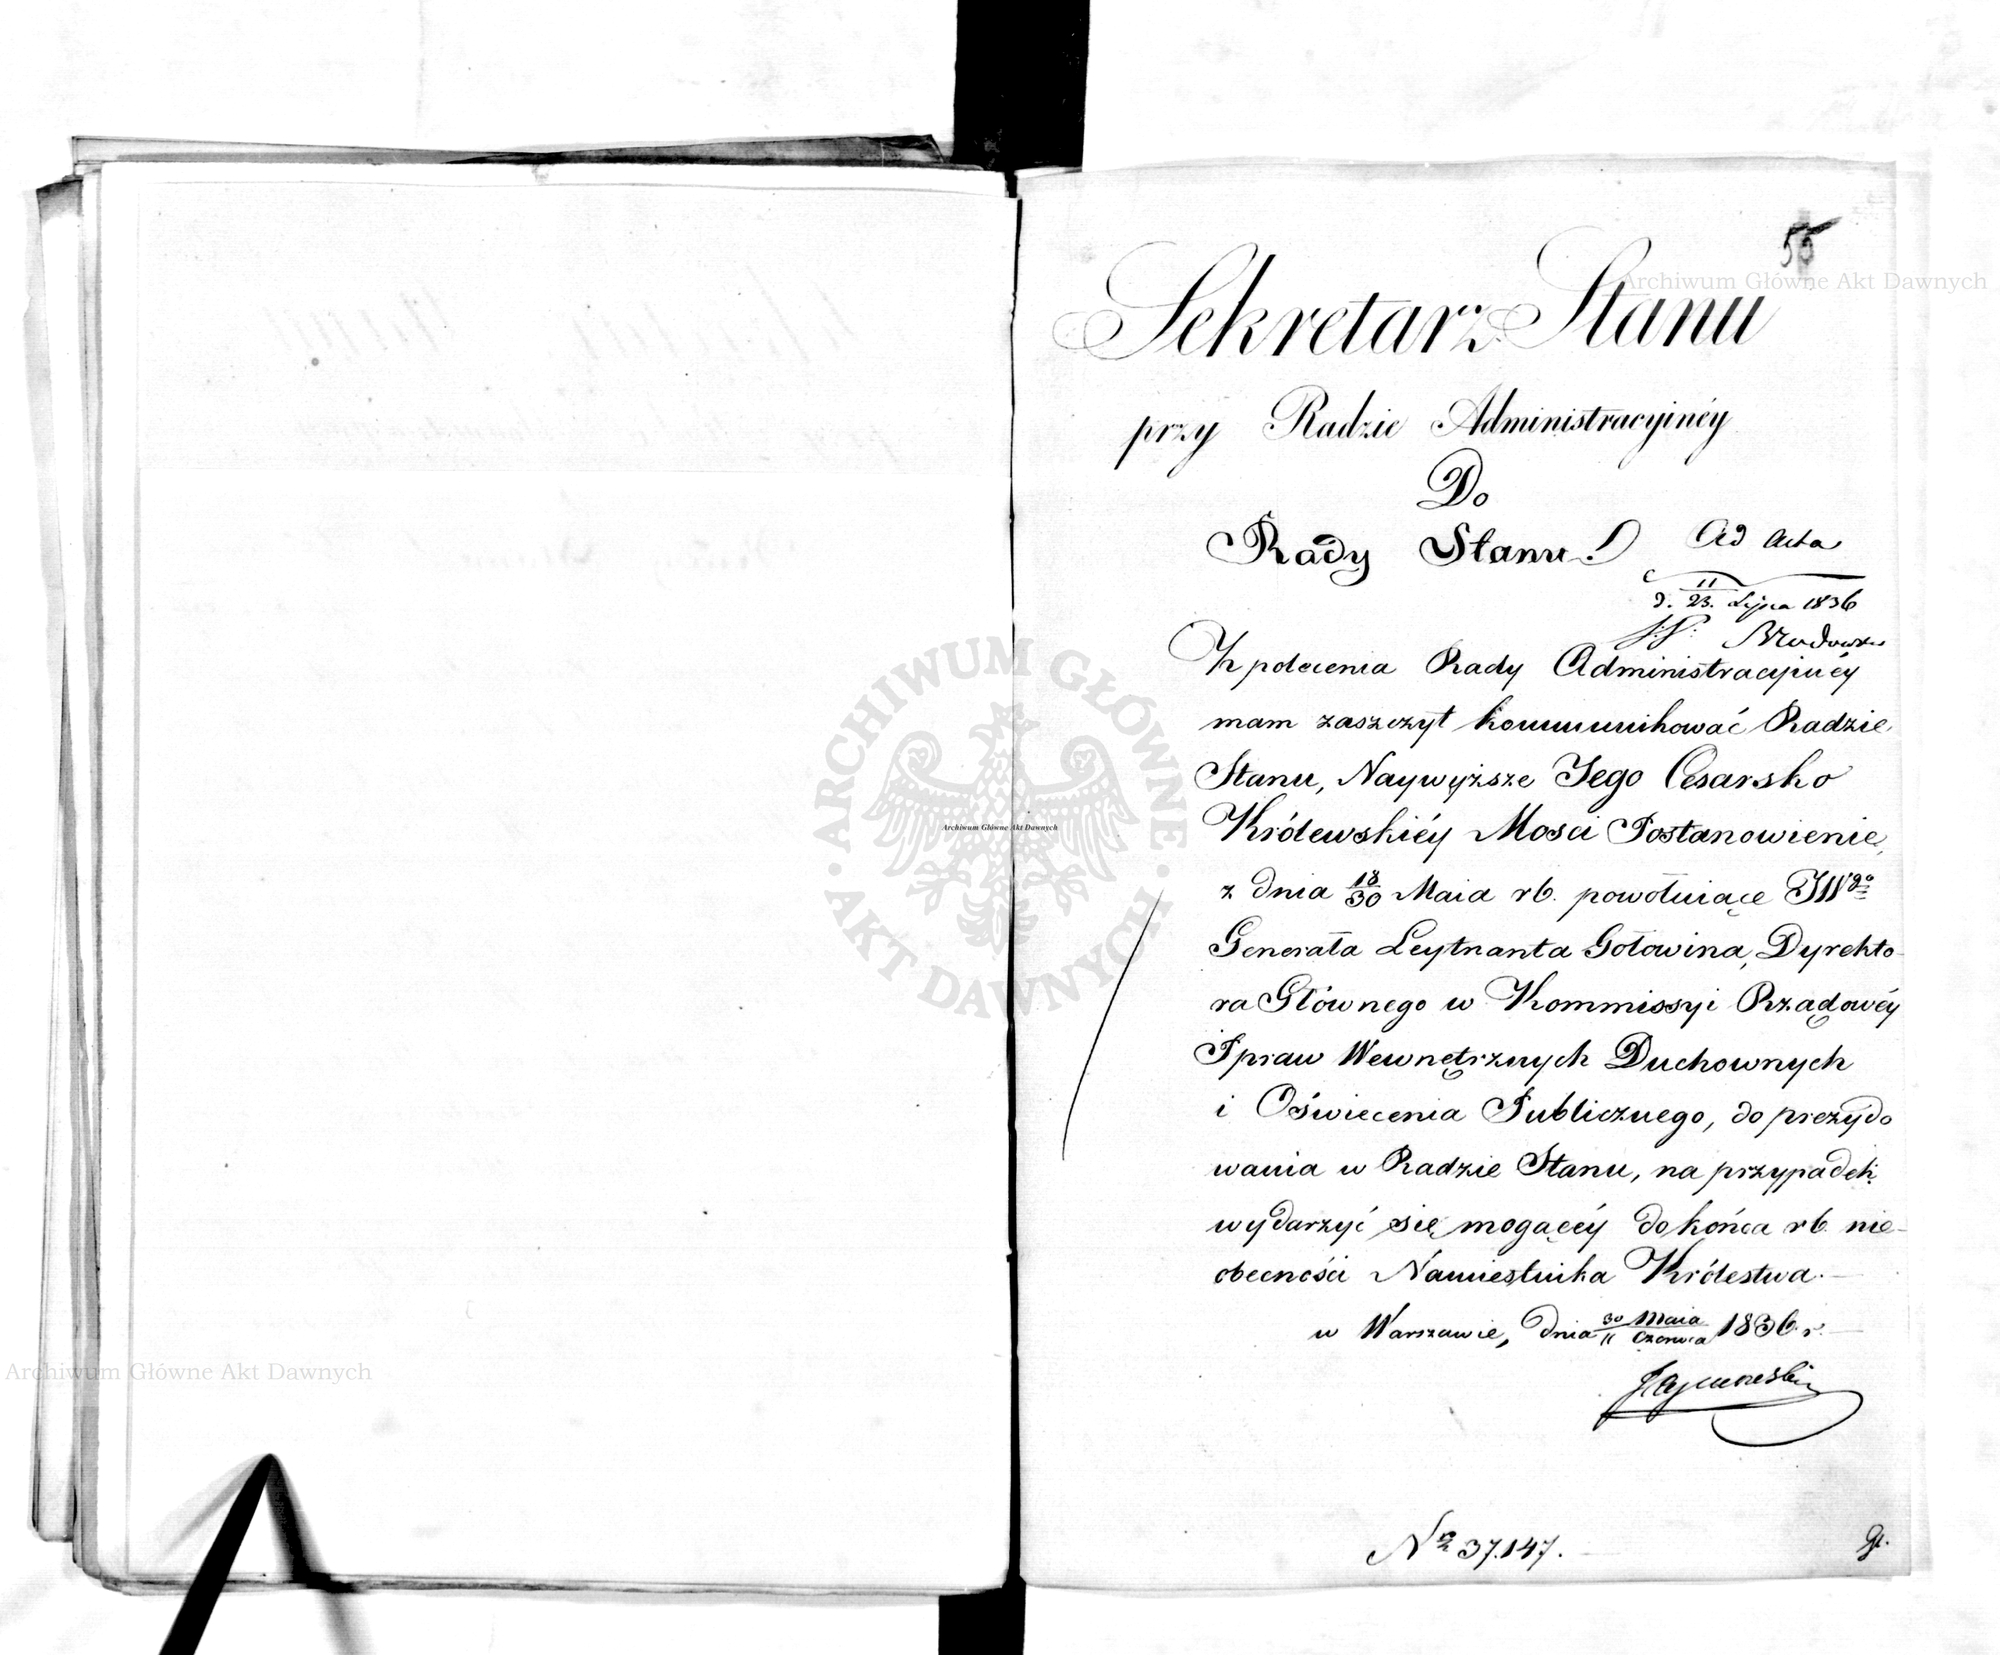 55
Sekretarz Stanu
przy Radzie Administracyinéy
Do
Rady Stanu.
Ad Acta
d. 11/23. Lipca 1836
Z polecenia Rady Administracyinéy
mam zaszczyt kommunikować Radzie
Stanu, Naywyższe Jego Cesarsko
Królewskiéy Mosci Postanowienie,
z dnia 18/30 Maia rb. powołuiące JWgo
Generała Leytnanta Gołowina, Dyrekto-
ra Głównego w Kommissyi Rządowéy
Spraw Wewnętrznych Duchownych
i Oświecenia Publicznego, do prezydo
wania w Radzie Stanu, na przypadek
wydarzyć się mogącéy do końca rb. nie-
obecności Namiestnika Królestwa.
w Warszawie, dnia 30 Maia/11 Czerwca 1836 r.
No 37.147.
Archiwum Główne Akt Dawnych
Archiwum Główne Akt Dawnych
Archiwum Główne Akt Dawnych
ARCHIWUM GŁÓWNE
AKT DAWNYCH